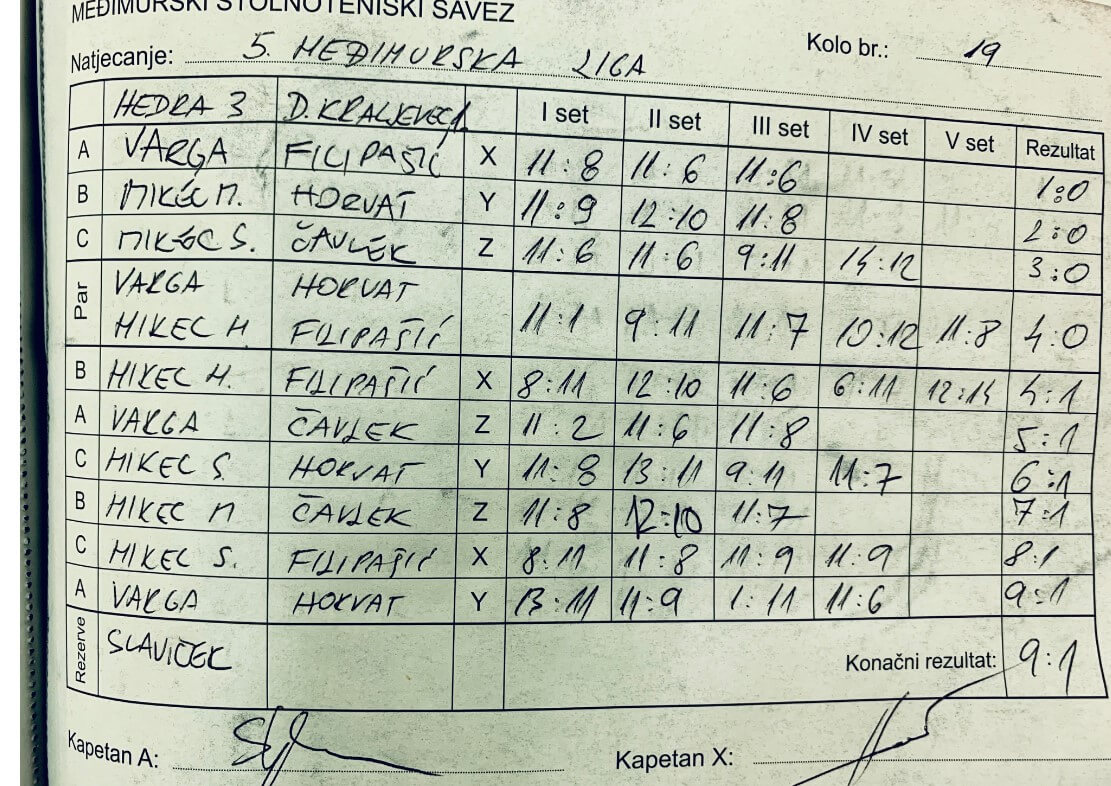 MEĐIMURSKI STOLNOTENISKI SAVEZ
Natjecanje: 5. MEĐIMURSKA LIGA Kolo br.: 19
HEDRA 3 D. KRALJEVEC I set II set III set IV set V set Rezultat
A VARGA FILIPAŠIĆ X 11:8 11:6 11:6 1:0
B MIKEC M. HORVAT Y 11:9 12:10 11:8 2:0
C MIKEC S. ČAVLEK Z 11:6 11:6 9:11 14:12 3:0
Par VARGA HORVAT
MIKEC M. FILIPAŠIĆ 11:1 9:11 11:7 10:12 11:8 4:0
B MIKEC M. FILIPAŠIĆ X 8:11 12:10 11:6 6:11 12:14 4:1
A VARGA ČAVLEK Z 11:2 11:6 11:8 5:1
C MIKEC S. HORVAT Y 11:8 13:11 9:11 11:7 6:1
B MIKEC M ČAVLEK Z 11:8 12:10 11:7 7:1
C MIKEC S. FILIPAŠIĆ X 8:11 11:8 11:9 11:9 8:1
A VARGA HORVAT Y 13:11 11:9 1:11 11:6 9:1
Rezerve SLAVIČEK Konačni rezultat: 9:1
Kapetan A: Kapetan X: